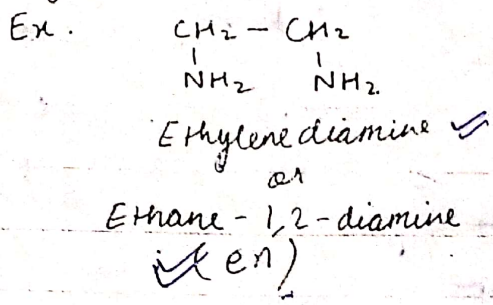 Ex. CH2 - CH2
NH2 NH2.
Ethylenediamine
or
Ethane-1,2-diamine
(en)